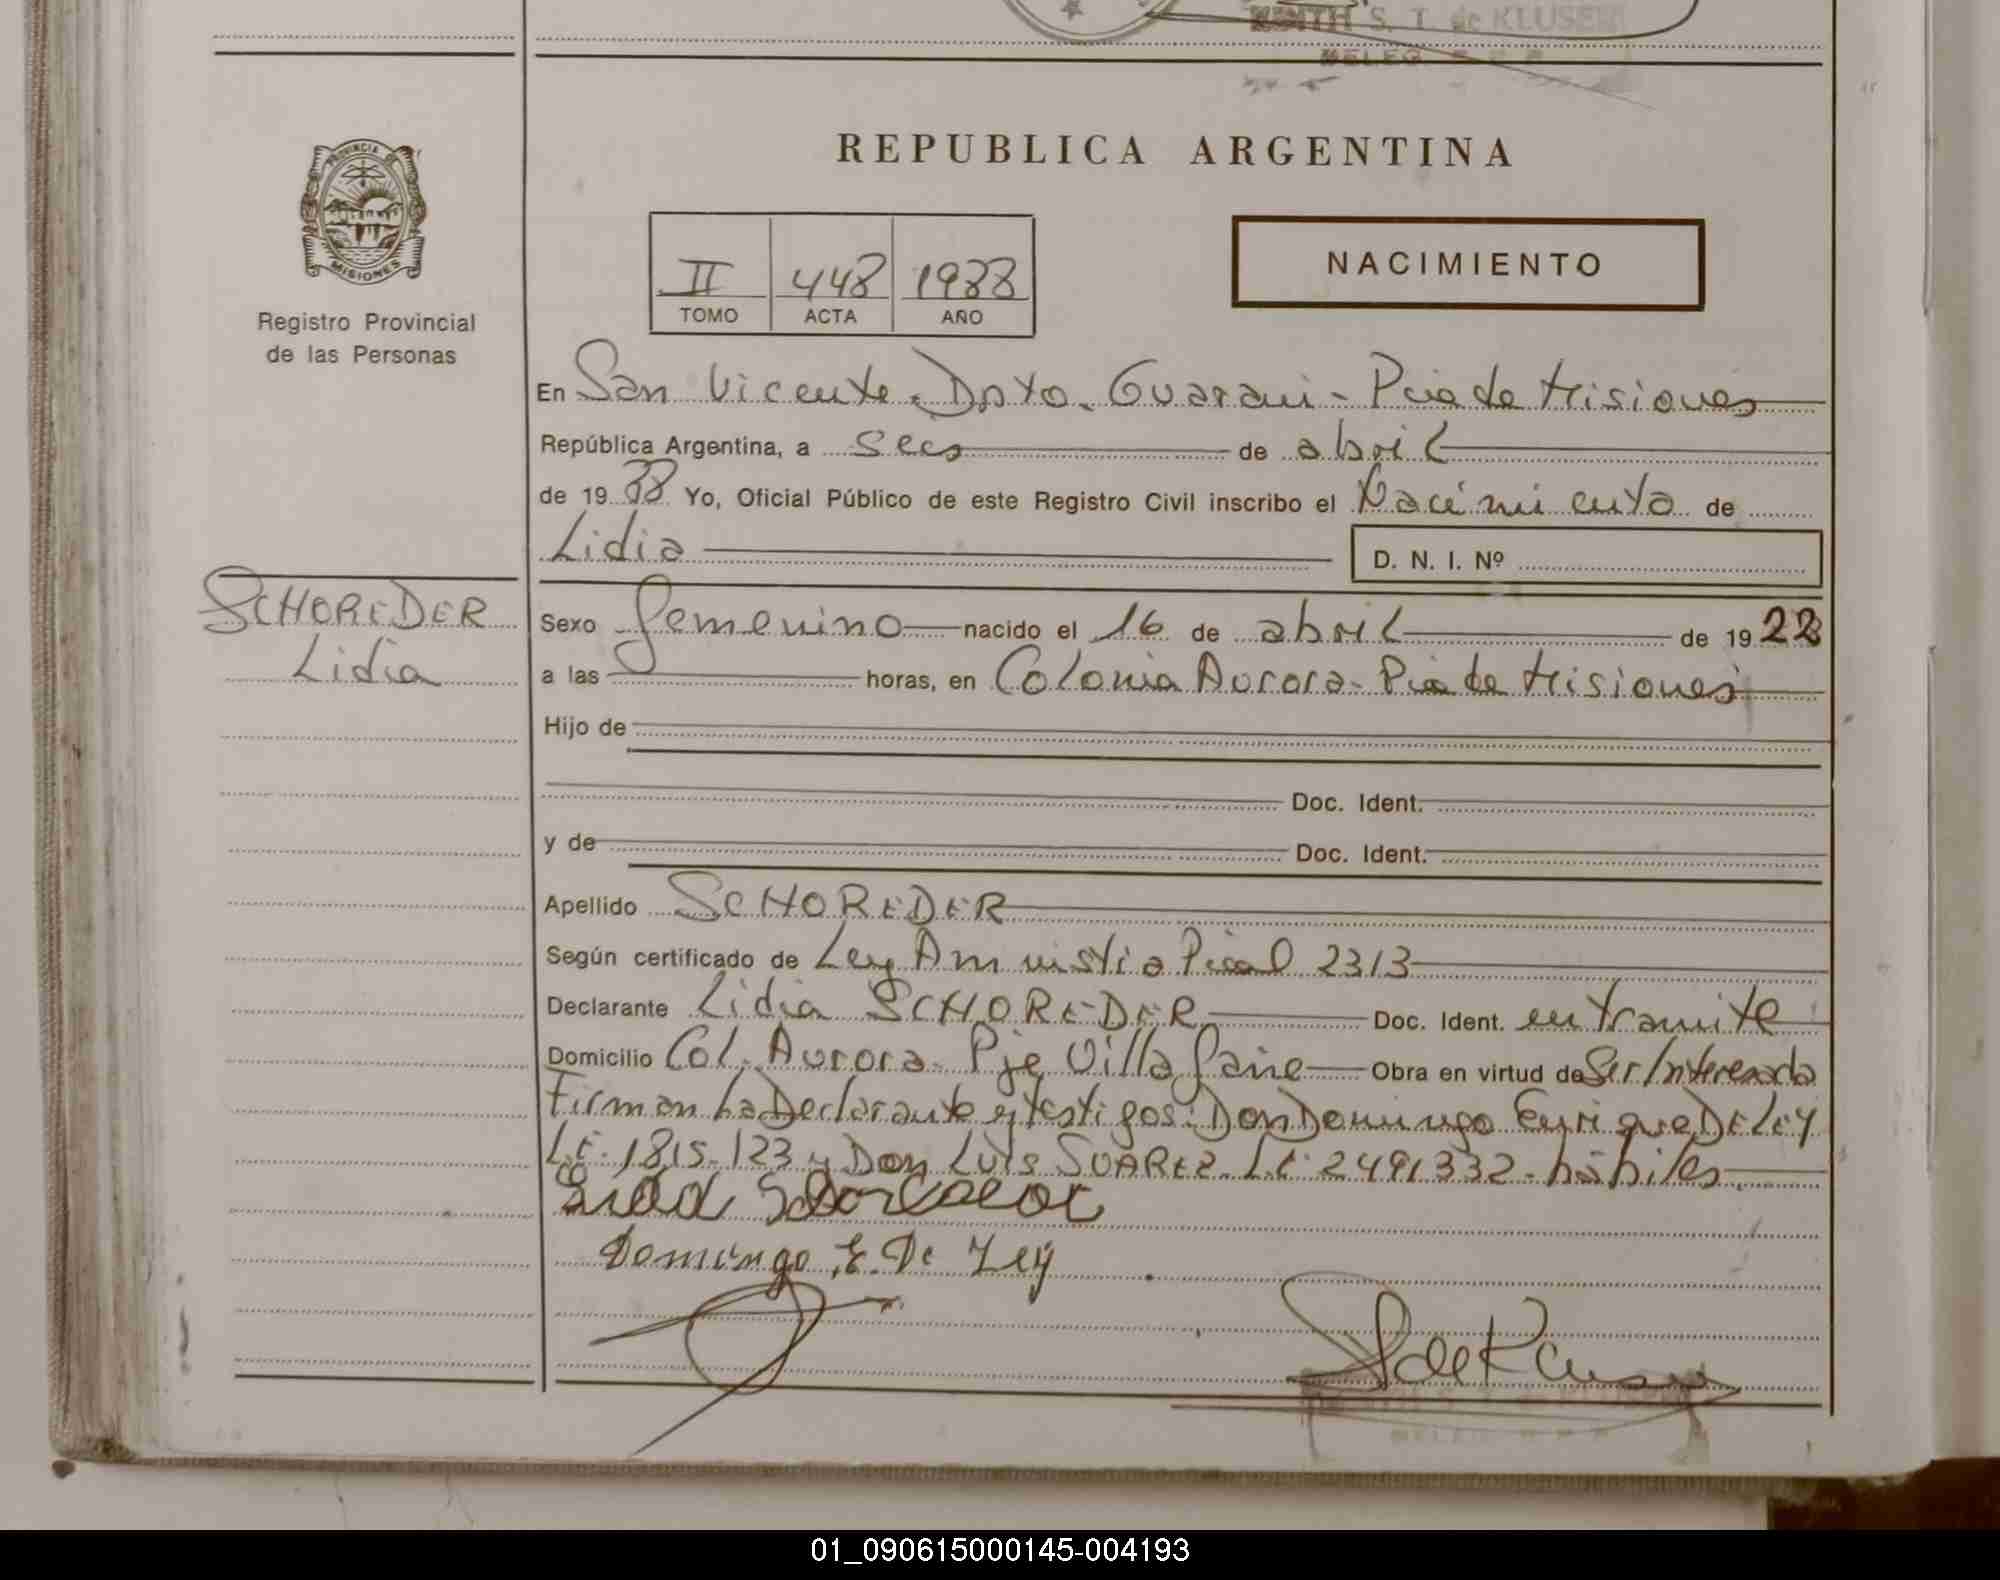 KEITH S. T. de KLUSEN
DELEG.
REPUBLICA ARGENTINA
PROVINCIA DE
MISIONES
Registro Provincial
de las Personas
II 448 1988
TOMO ACTA AÑO
NACIMIENTO
En San Vicente. Dpto. Guarani - Pcia de Misiones
República Argentina, a seis de abril
de 19 88 Yo, Oficial Público de este Registro Civil inscribo el Nacimiento de
Lidia D. N. I. Nº
SCHOREDER
Lidia
Sexo femenino nacido el 16 de abril de 19 22
a las horas, en Colonia Aurora - Pcia de Misiones
Hijo de
Doc. Ident.
y de Doc. Ident.
Apellido SCHOREDER
Según certificado de Ley Amnistia Pcial 2313
Declarante Lidia SCHOREDER Doc. Ident. en tramite
Domicilio Col. Aurora - Pje Villafañe Obra en virtud de Ser Interesada
Firman La Declarante y testigos: Don Domingo Enrique DE LEY
L.E. 1815-123 y Don Luis SUAREZ - L.E. 2491332 - hábiles
Domingo E. De Ley
01_090615000145-004193